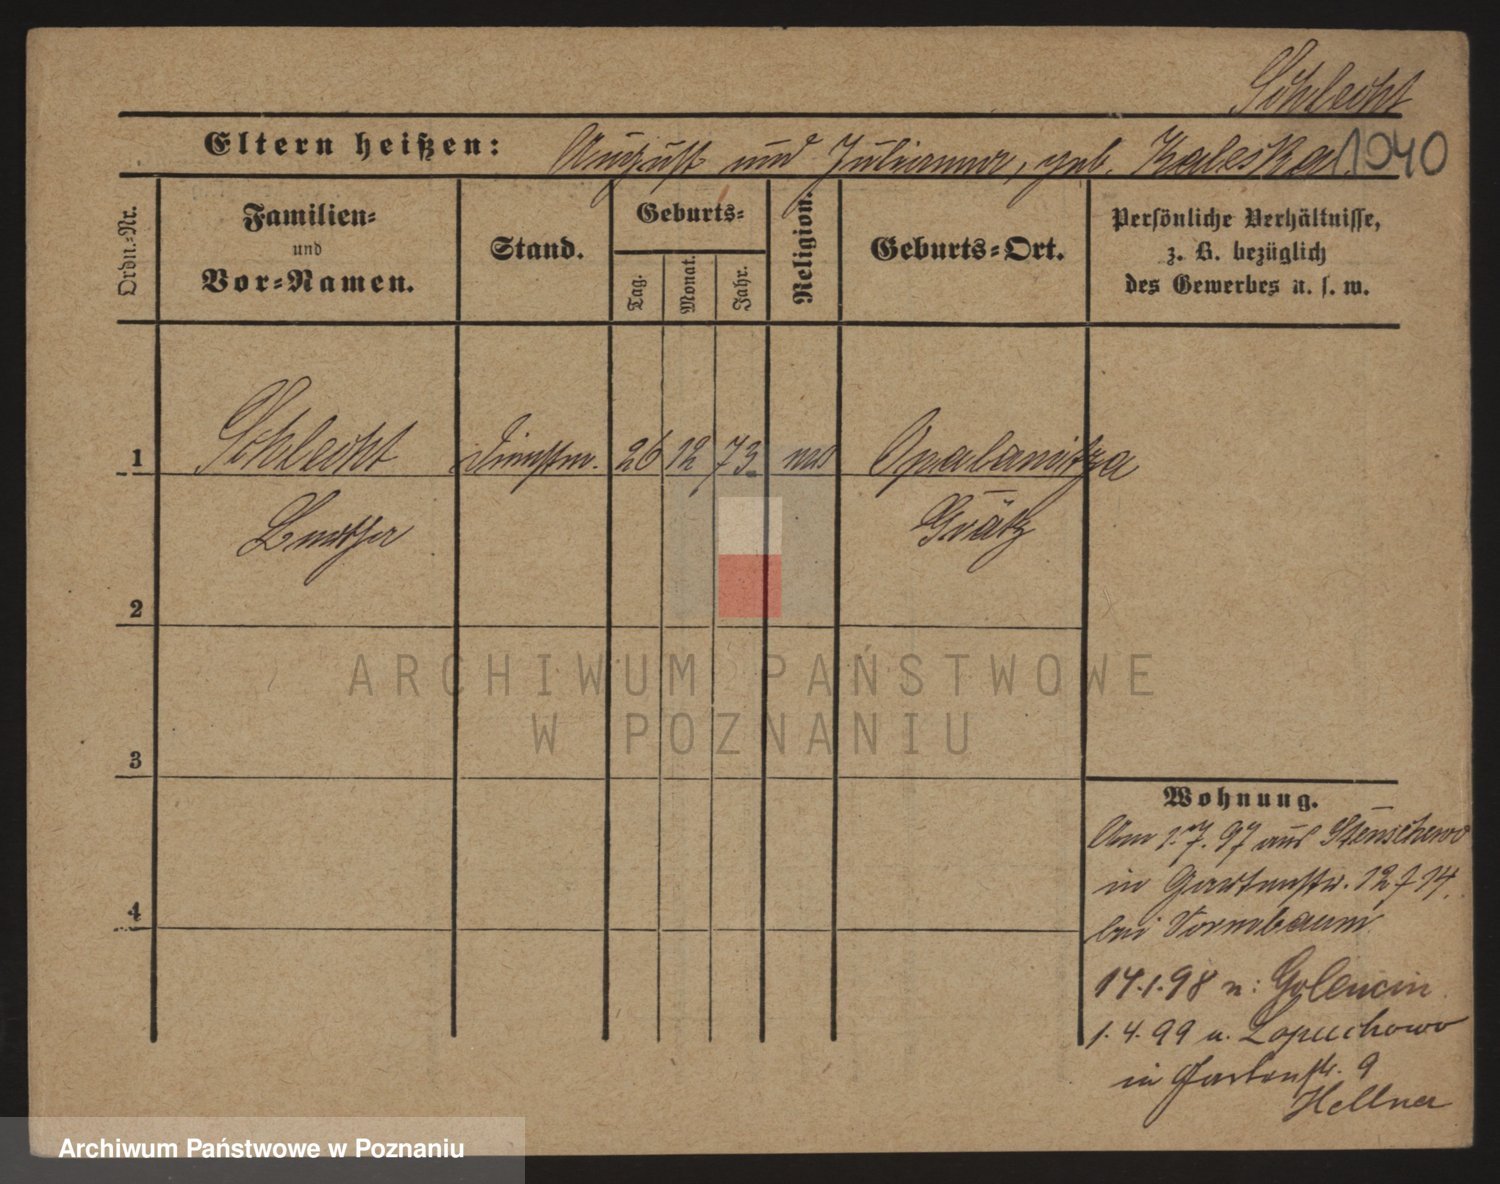 Schlecht
Eltern heißen: August und Julianna, geb. Kaleska 1040
Ordn.-Nr.
Familien-
und
Vor-Namen.
Stand.
Geburts-
Tag.
Monat.
Jahr.
Religion.
Geburts-Ort.
Persönliche Verhältnisse,
z. B. bezüglich
des Gewerbes u. s. w.
1 Schlecht Dienstm. 26 12 73 Opalanitza
Grätz
2
3
4
Wohnung.
Am 1.7.97 aus Stenschewo
in Gartenstr. 12 f 14.
bei Vormbaum
14.1.98 n: Golencin
1.4.99 u. Lopuchowo
in Gartenstr. 9
Hellner
ARCHIWUM PAŃSTWOWE
W POZNANIU
Archiwum Państwowe w Poznaniu